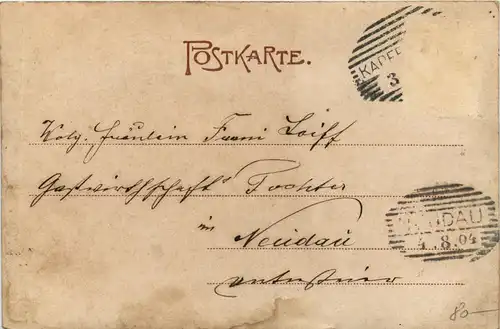 POSTKARTE.
KAPFE
3
Wolg. Fräulein Fanni Loiff
Gastwirthschafts Tochter
in
Neudau
NEUDAU
4.8.04
80